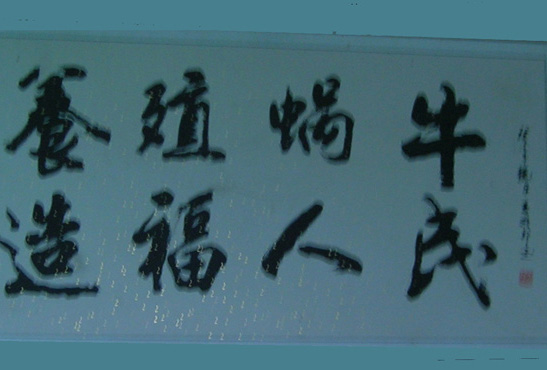 養殖蝸牛
造福人民